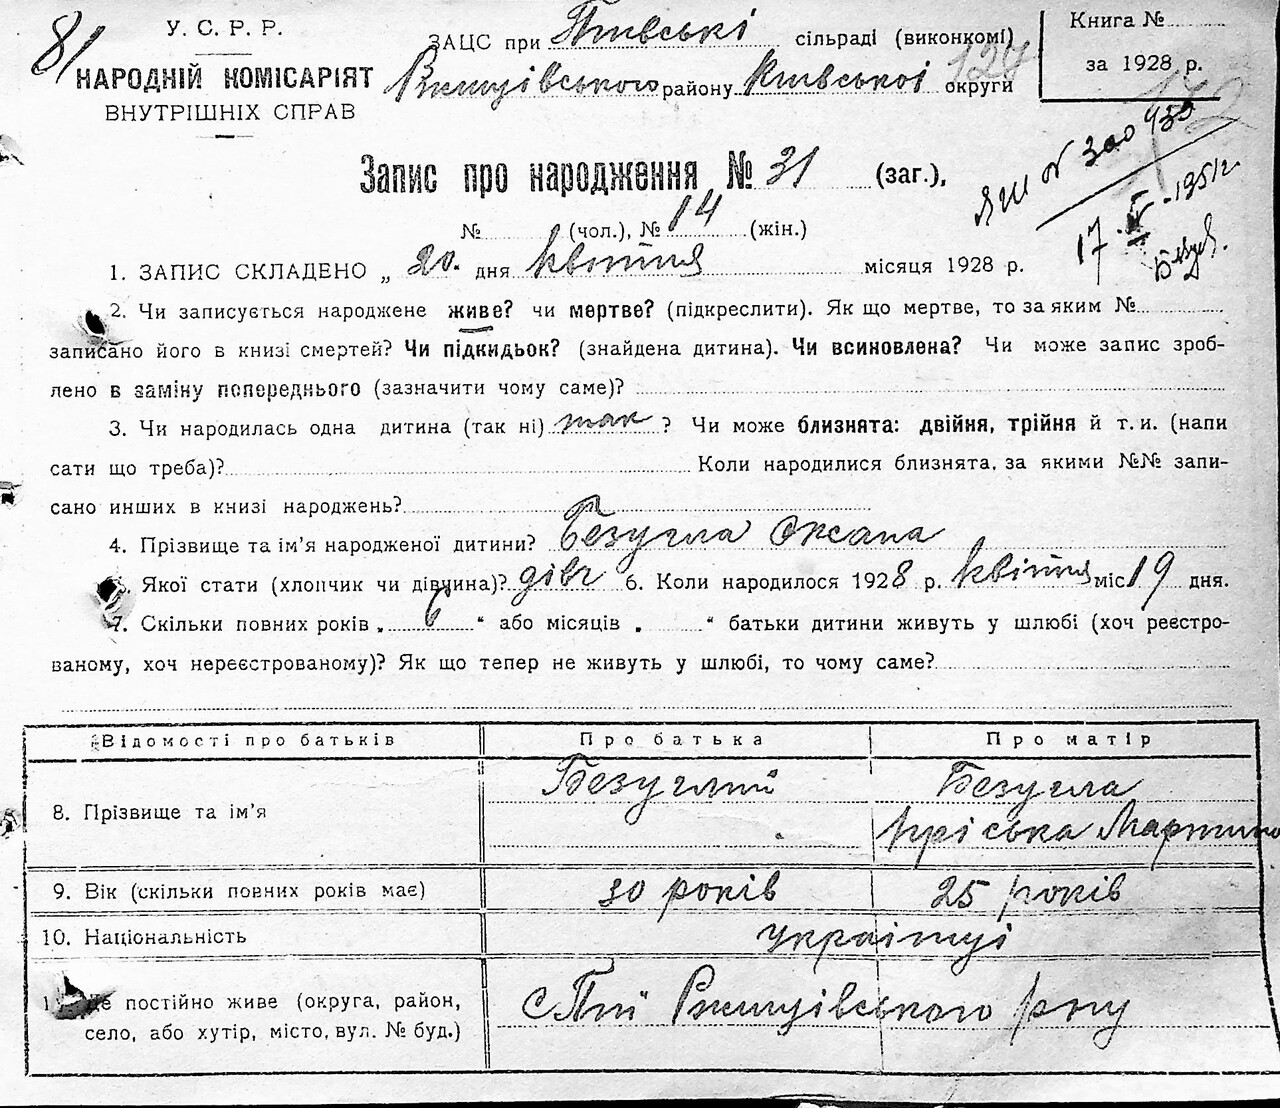 81
У. С. Р. Р.
НАРОДНІЙ КОМІСАРІЯТ
ВНУТРІШНІХ СПРАВ
ЗАЦС при Пиївські сільраді (виконкомі)
Ржищівського району Київської округи
127
Книга №
за 1928 р.
172
Запис про народження № 31 (заг.),
№ (чол.), № 14 (жін.)
ЯШ № 300439
17.IV-1951г
1. ЗАПИС СКЛАДЕНО „ 20. дня квітня місяця 1928 р.
2. Чи записується народжене живе? чи мертве? (підкреслити). Як що мертве, то за яким №
записано його в книзі смертей? Чи підкидьок? (знайдена дитина). Чи всиновлена? Чи може запис зроб-
лено в заміну попереднього (зазначити чому саме)?
3. Чи народилась одна дитина (так ні) так ? Чи може близнята: двійня, трійня й т. и. (напи
сати що треба)? Коли народилися близнята, за якими №№ запи-
сано инших в книзі народжень?
4. Прізвище та ім'я народженої дитини? Безугла Оксана
Якої стати (хлопчик чи дівчина)? дівч 6. Коли народилося 1928 р. квітня міс 19 дня.
7. Скільки повних років „ 6 “ або місяців „ “ батьки дитини живуть у шлюбі (хоч реєстро-
ваному, хоч нереєстрованому)? Як що тепер не живуть у шлюбі, то чому саме?
Відомості про батьків Про батька Про матір
8. Прізвище та ім'я Безуглий Безугла
Пріська Мартино
9. Вік (скільки повних років має) 30 років 25 років
10. Національність українці
Де постійно живе (округа, район, с Пії Ржищівського р-ну
село, або хутір, місто, вул. № буд.)